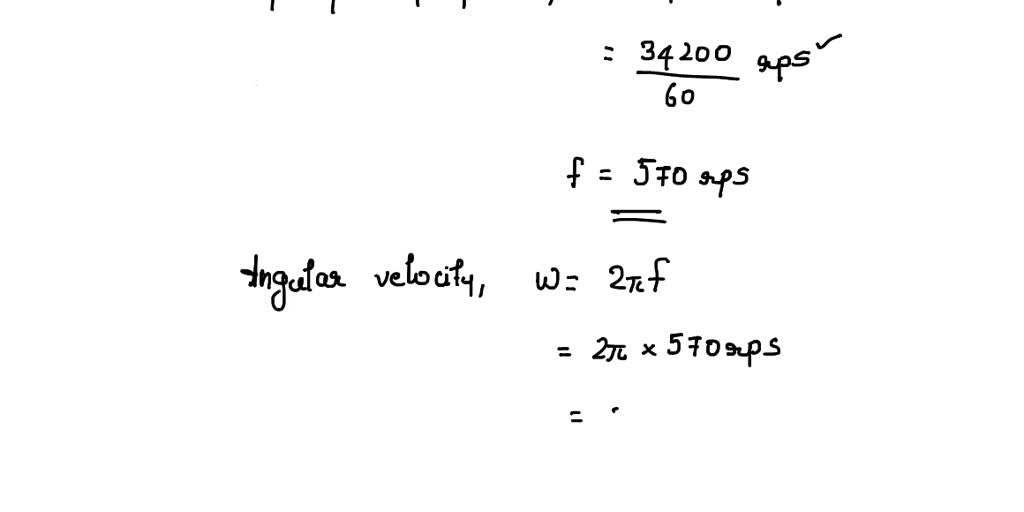 = 34200/60 rps ✓
f = 570 rps
Angular velocity, ω = 2πf
= 2π × 570 rps
=